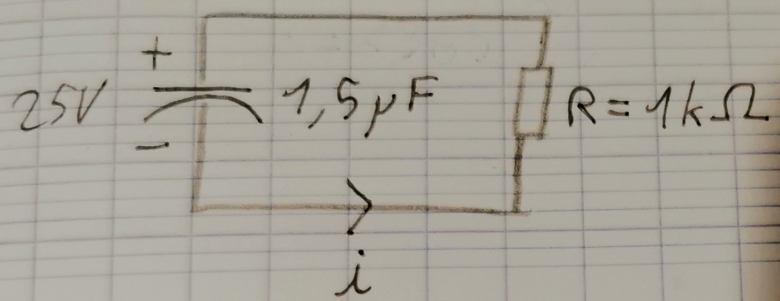 +
25V 1,5μF R = 1kΩ
-
i